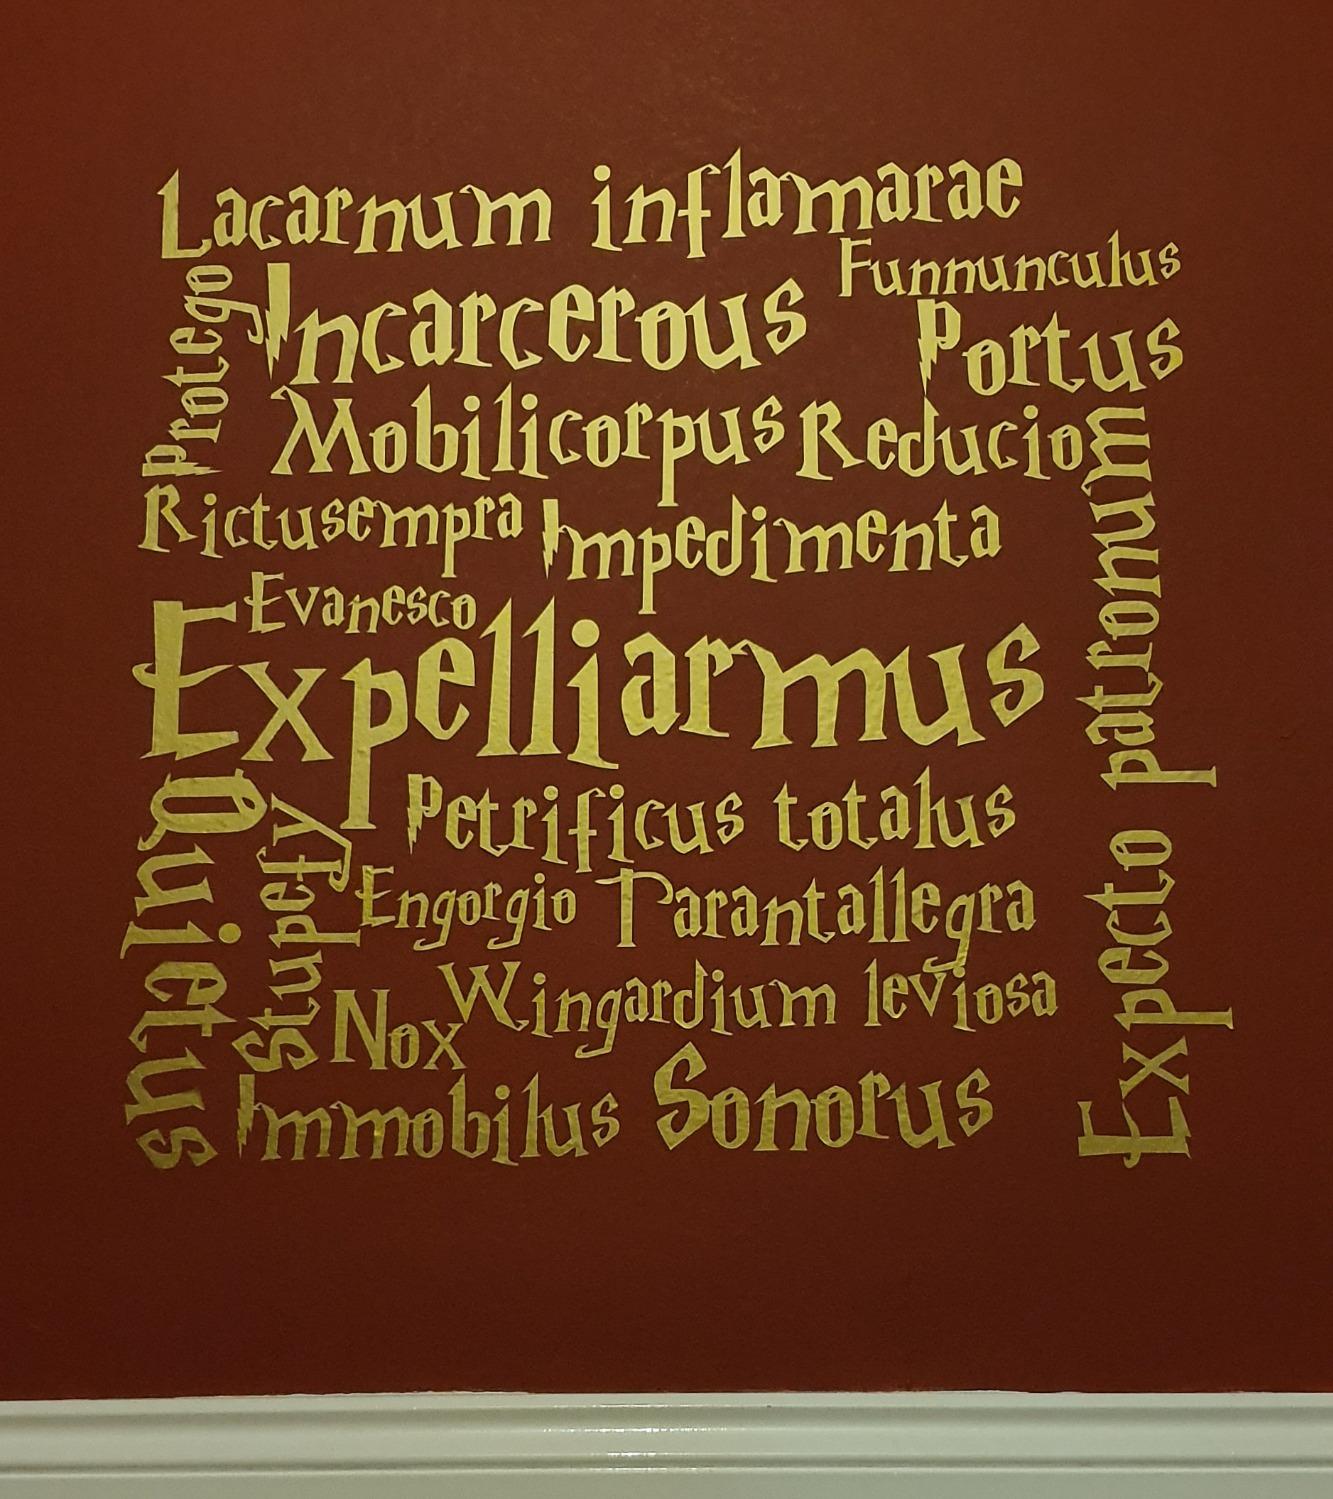 Lacarnum inflamarae
Funnunculus
Protego
Incarcerous
Portus
Mobilicorpus Reducio
Rictusempra Impedimenta
Evanesco
Expelliarmus
Expecto patronum
Quietus
Stupefy
Petrificus totalus
Engorgio Tarantallegra
Wingardium leviosa
Nox
Immobilus Sonorus